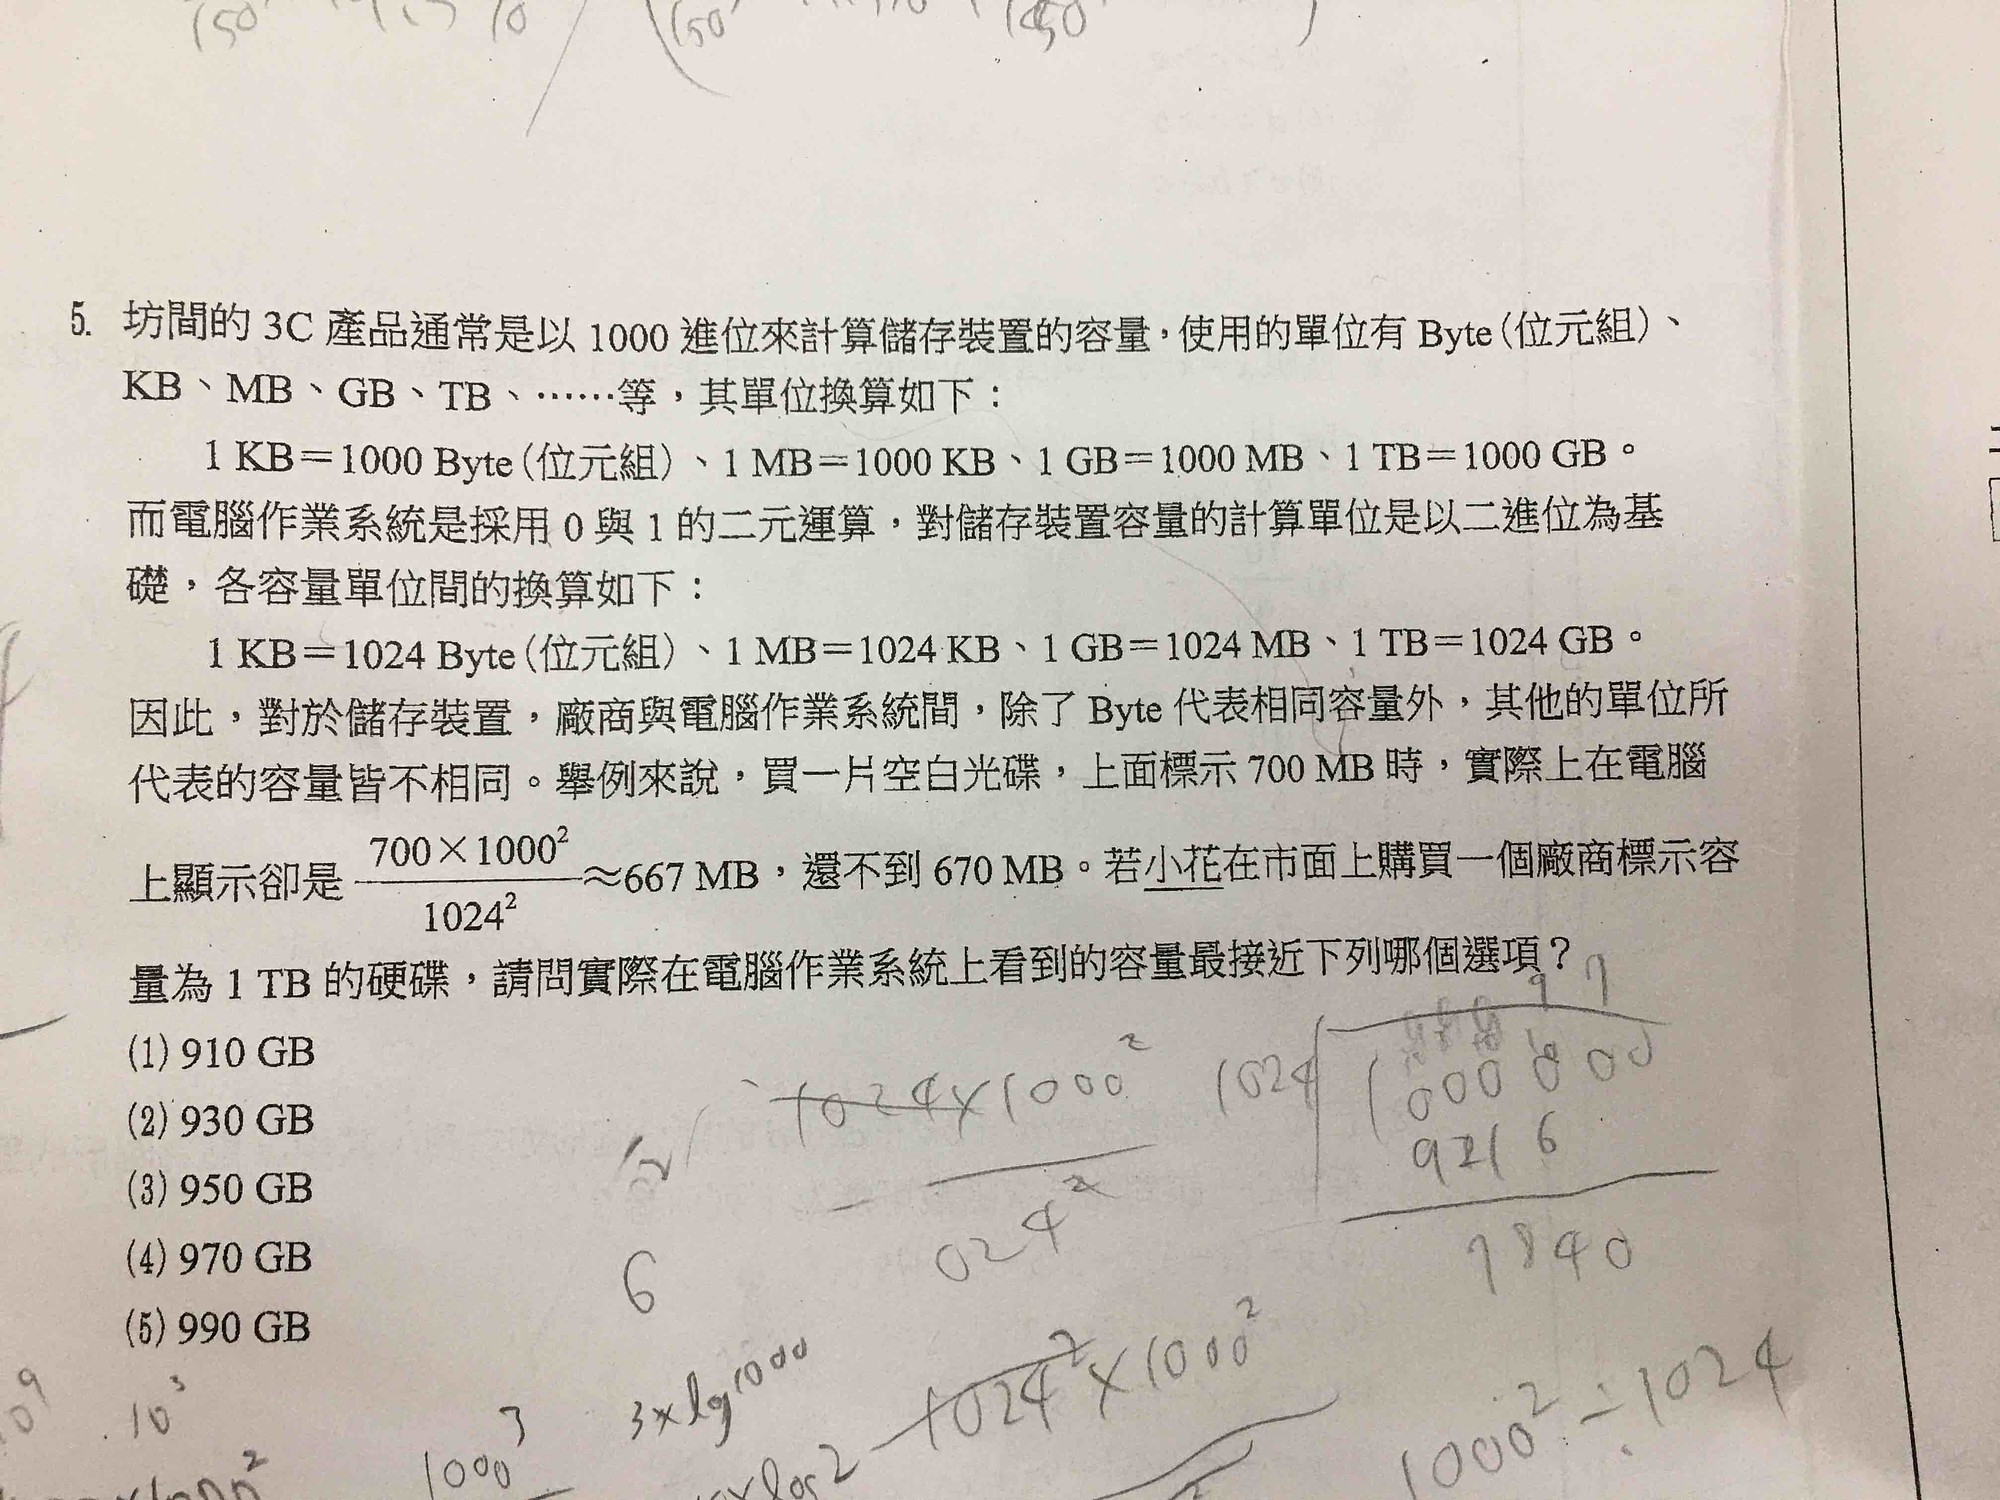 5. 坊間的 3C 產品通常是以 1000 進位來計算儲存裝置的容量，使用的單位有 Byte(位元組)、
KB、MB、GB、TB、……等，其單位換算如下：
1 KB＝1000 Byte(位元組)、1 MB＝1000 KB、1 GB＝1000 MB、1 TB＝1000 GB。
而電腦作業系統是採用 0 與 1 的二元運算，對儲存裝置容量的計算單位是以二進位為基
礎，各容量單位間的換算如下：
1 KB＝1024 Byte(位元組)、1 MB＝1024 KB、1 GB＝1024 MB、1 TB＝1024 GB。
因此，對於儲存裝置，廠商與電腦作業系統間，除了 Byte 代表相同容量外，其他的單位所
代表的容量皆不相同。舉例來說，買一片空白光碟，上面標示 700 MB 時，實際上在電腦
上顯示卻是 700×1000²/1024² ≈667 MB，還不到 670 MB。若小花在市面上購買一個廠商標示容
量為 1 TB 的硬碟，請問實際在電腦作業系統上看到的容量最接近下列哪個選項？
(1) 910 GB
(2) 930 GB
(3) 950 GB
(4) 970 GB
(5) 990 GB
97
1024×1000²
1024
1000000
9216
024²
7840
6
3×log1000
1024²×1000²
1000²÷1024
10³
1000³